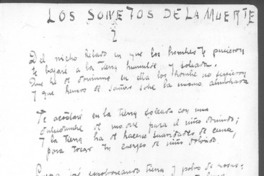 LOS SONETOS DE LA MUERTE
1
Del nicho helado en que los hombres te pusieron
te bajaré a la tierra humilde y soleada.
Que he de dormirme en ella los hombres no supieron
y que hemos de soñar sobre la misma almohada
Te acostaré en la tierra soleada con una
dulcedumbre de madre para el niño dormido,
y la tierra ha de hacerse suavidades de cuna
para tu cuerpo de niño dolorido
tierra y polvo de rosas,